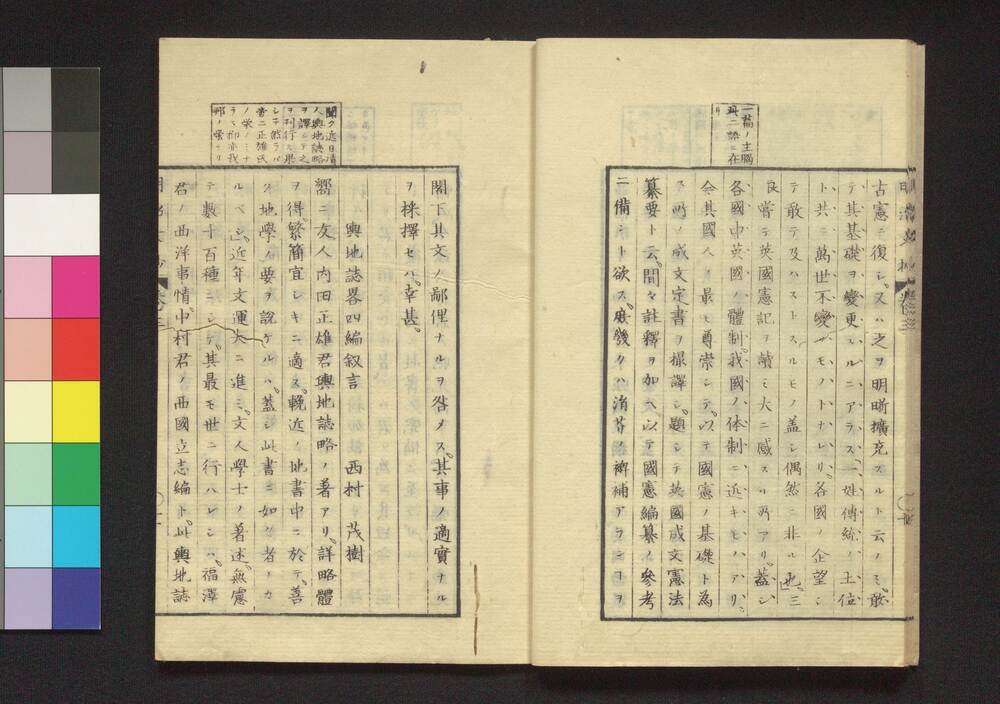 一篇ノ主腦
古憲ニ復シ又ハ之ヲ明晣擴充スルト云ノミ敢
テ其基礎ヲ變更スルニアラス一姓傳統ノ土位
ト共ニ萬世不變ノモノトナレリ各國ノ企望シ
テ敢テ及ハストスルモノ蓋シ偶然ニ非ル也三
良嘗テ英國憲記ヲ讀ミ大ニ感スル所アリ蓋シ
各國中英國ノ體制我國ノ体制ニ近キモノアリ
今其國人ノ最モ尊崇シテ以テ國憲ノ基礎ト為
ス所ノ成文定書ヲ撮譯シ題シテ英國成文憲法
纂要ト云間々註釋ヲ加ヘ以テ國憲編纂ノ參考
ニ備ヘント欲ス庶幾クハ涓芥裨補アランヿヲ
閣下其文ノ鄙俚ナルヲ咎メス其事ノ適實ナル
ヲ採擇セハ幸甚
輿地誌畧四編叙言 西村 茂樹
嚮ニ友人内田正雄君輿地誌略ノ著アリ詳略體
ヲ得繁簡宜シキニ適ス輓近ノ地書中ニ於テ善
ク地學ノ要ヲ說ケルハ蓋シ此書ニ如ク者ナカ
ルベシ近年文運大ニ進ミ文人學士ノ著述無慮
數十百種ニシテ其最モ世ニ行ハレシハ福澤
君ノ西洋事情中村君ノ西國立志編ト此輿地誌
聞ク近日清
ノ輿地誌略
ヲ譯シテ之
ヲ刊行スト果
シテ然ラバ
啻ニ正雄氏
ノ榮ノミナ
ラス抑亦我
邦ノ榮ナリ